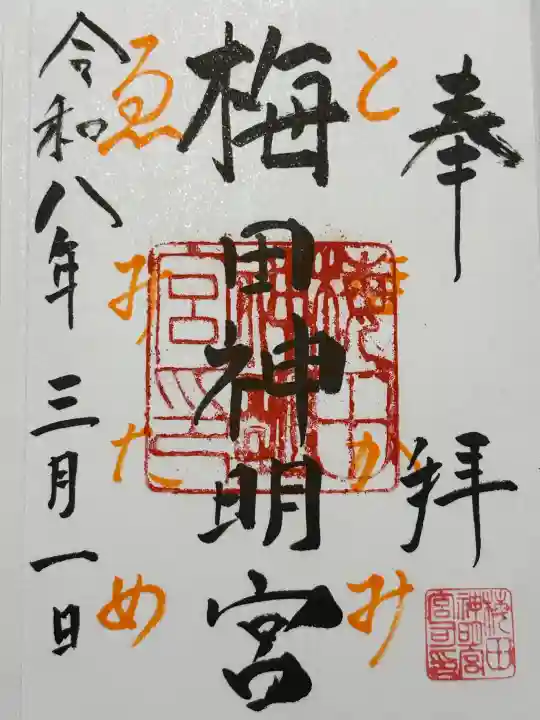 奉拝
とほかみ
梅田神明宮
ゑみため
令和八年三月一日
梅田
神明
宮印
梅田
神明宮
宮司印